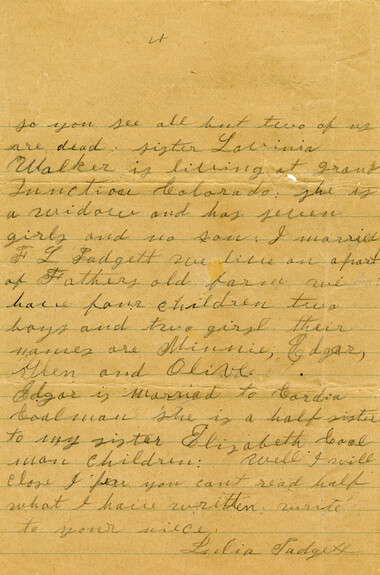 4
so you see all but two of us
are dead: sister Lovinia
Walker is living at Grand
Junction Colorado: she is
a widow and has seven
girls and no son: I married
F L Padgett we live on apart
of Fathers old farm we
have four children two
boys and two girsl their
names are Minnie, Edgar,
Allen and Olive
Edgar is married to Cordia
Coalman she is a half sister
to my sister Elizabeth Coal
man children: Well I will
close I you cant read half
what I have written: write
to your niece.
Lulia Padgett